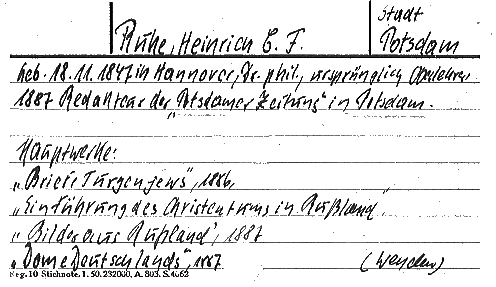 Stadt
Ruhe, Heinrich C. F. Potsdam
Geb. 18.11.1847 in Hannover, Dr. phil, ursprünglich
1887 Redakteur der "Potsdamer Zeitung" in Potsdam.
Hauptwerke:
"Briefe Turgenjews", 1886,
"Einführung des Christentums in Rußland"
"Bilder aus Rußland", 1887
"Dome Deutschlands", 1887 (wenden)
Reg. 10 Stichnote. 1. 50. 232000. A. 803. S. 4662